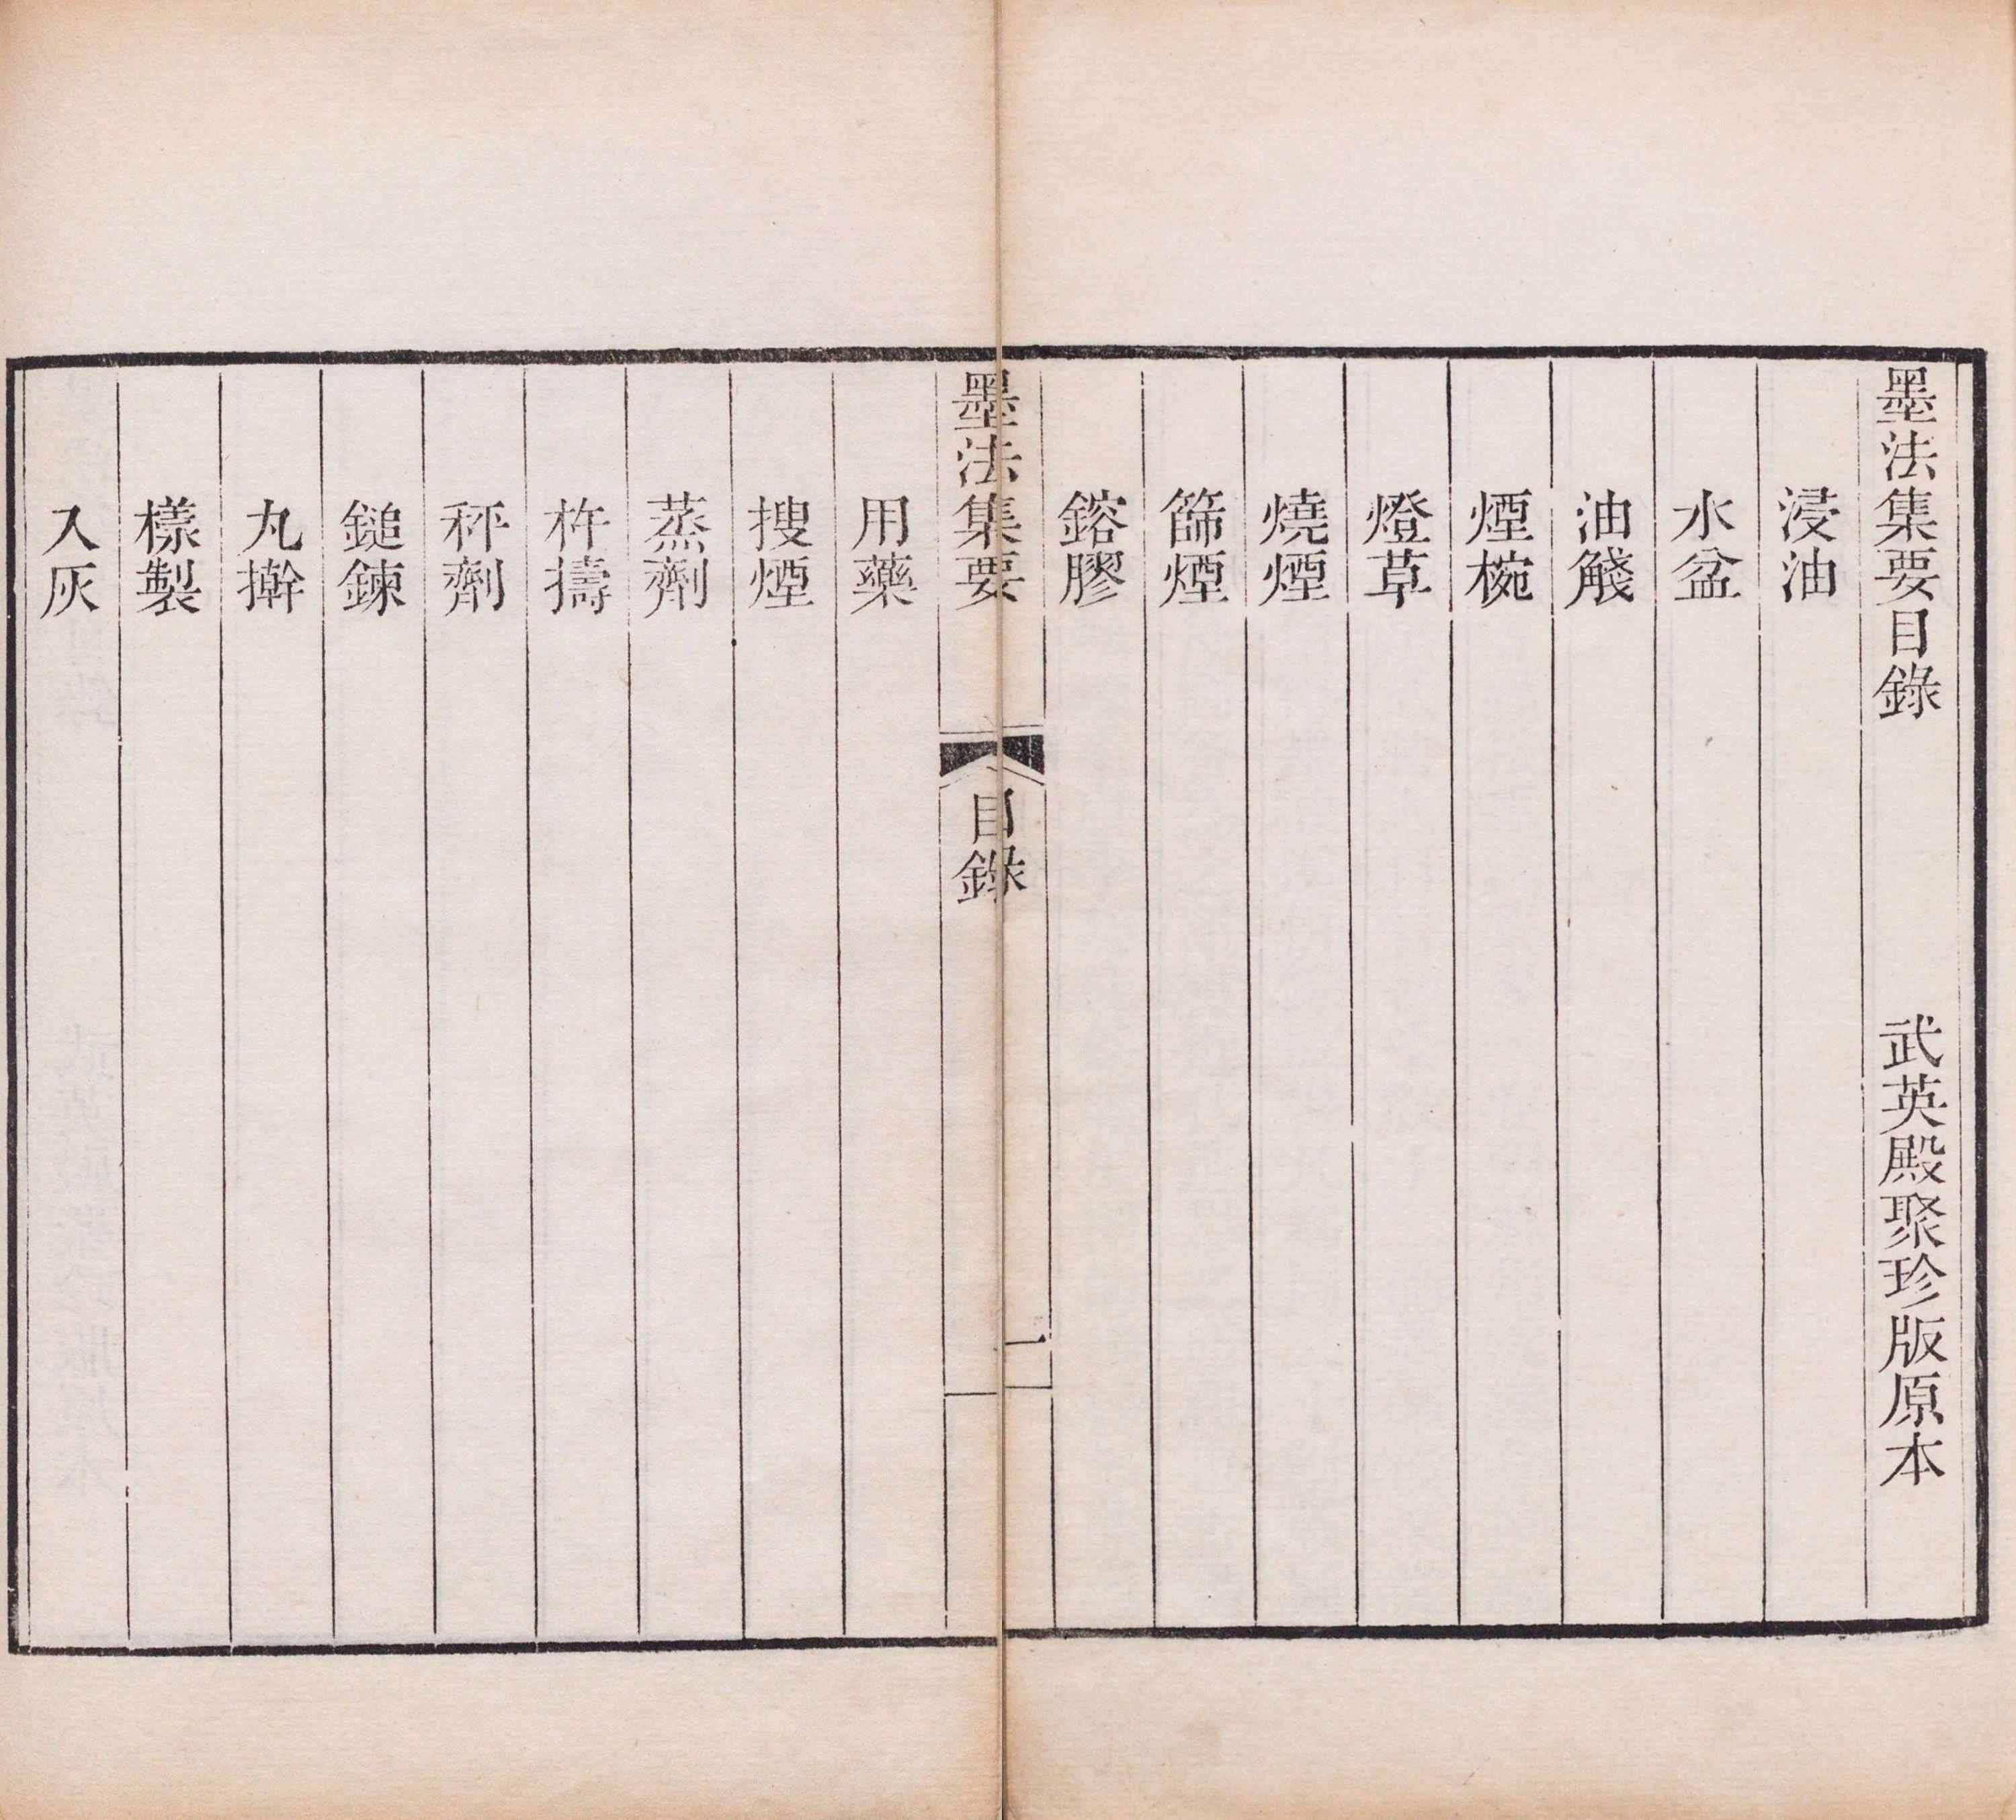 墨法集要目錄 武英殿聚珍版原本
浸油
水盆
油觴
煙椀
燈草
燒煙
篩煙
鎔膠
墨法集要 目錄 一
用藥
搜煙
蒸劑
杵擣
秤劑
鎚鍊
丸擀
樣製
入灰